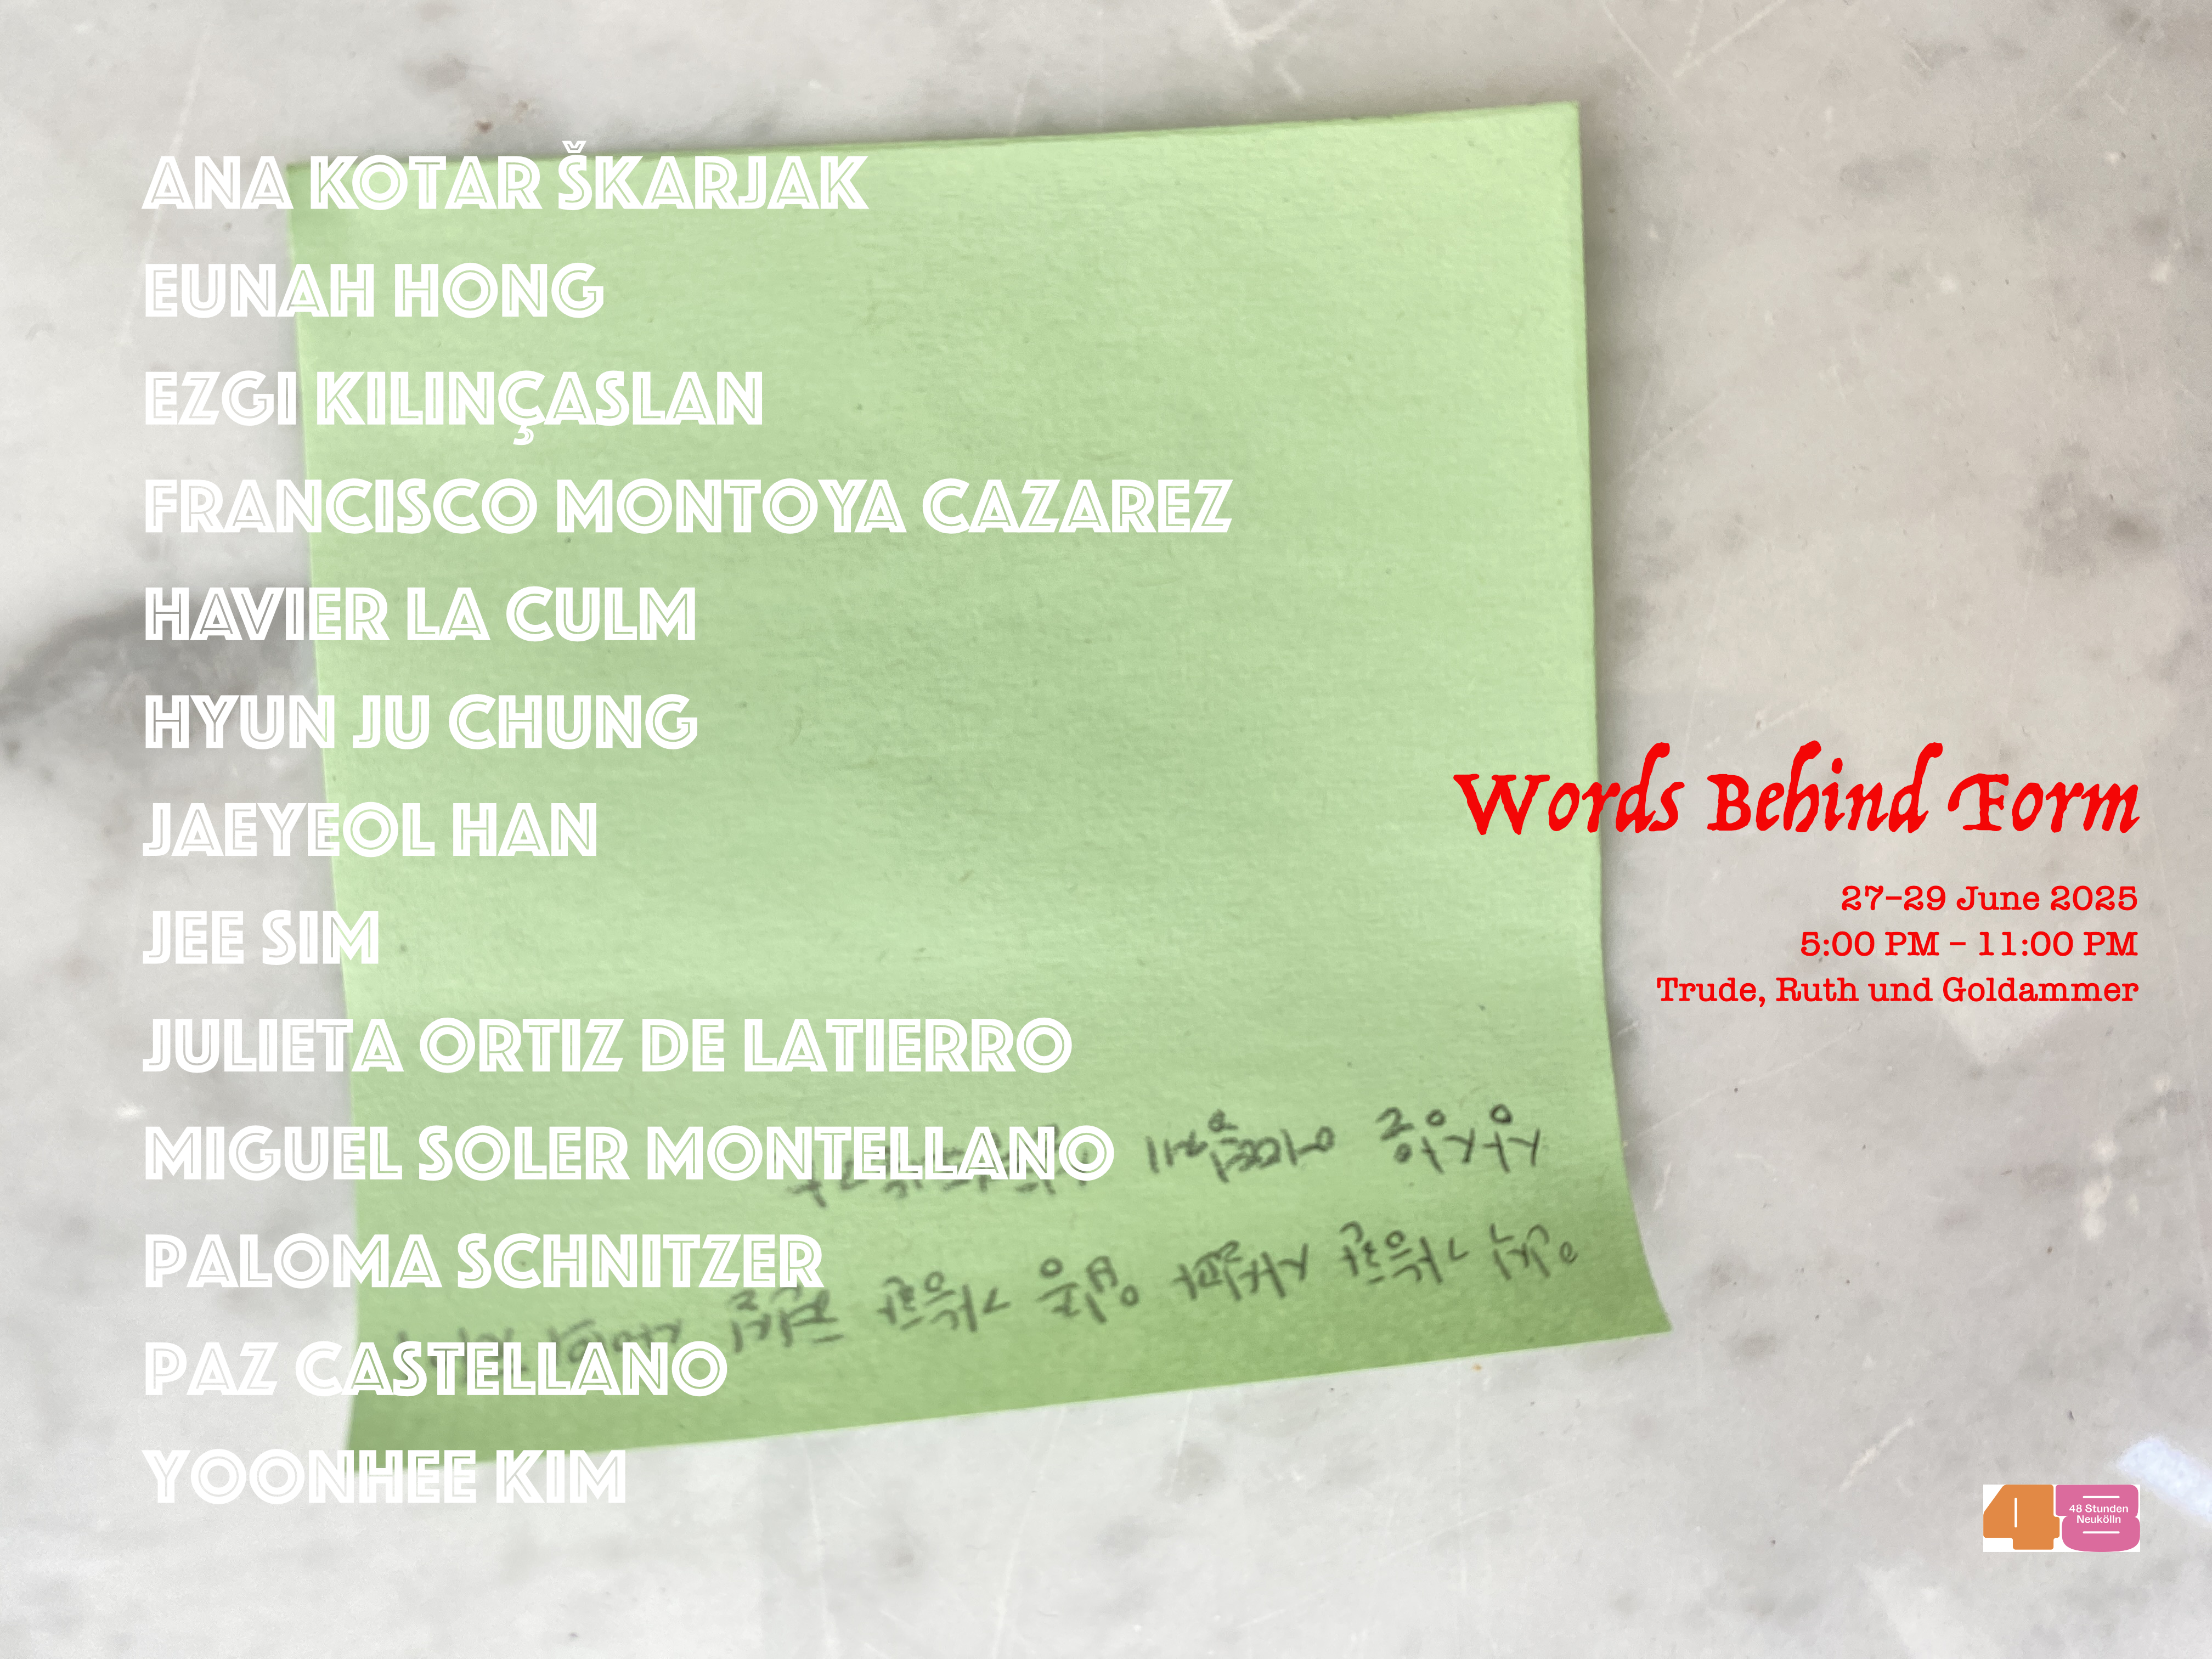 ANA KOTAR ŠKARJAK
EUNAH HONG
EZGI KILINÇASLAN
FRANCISCO MONTOYA CAZAREZ
HAVIER LA CULM
HYUN JU CHUNG
JAEYEOL HAN
JEE SIM
JULIETA ORTIZ DE LATIERRO
MIGUEL SOLER MONTELLANO
PALOMA SCHNITZER
PAZ CASTELLANO
YOONHEE KIM
Words Behind Form
27–29 June 2025
5:00 PM – 11:00 PM
Trude, Ruth und Goldammer
48 Stunden
Neukölln